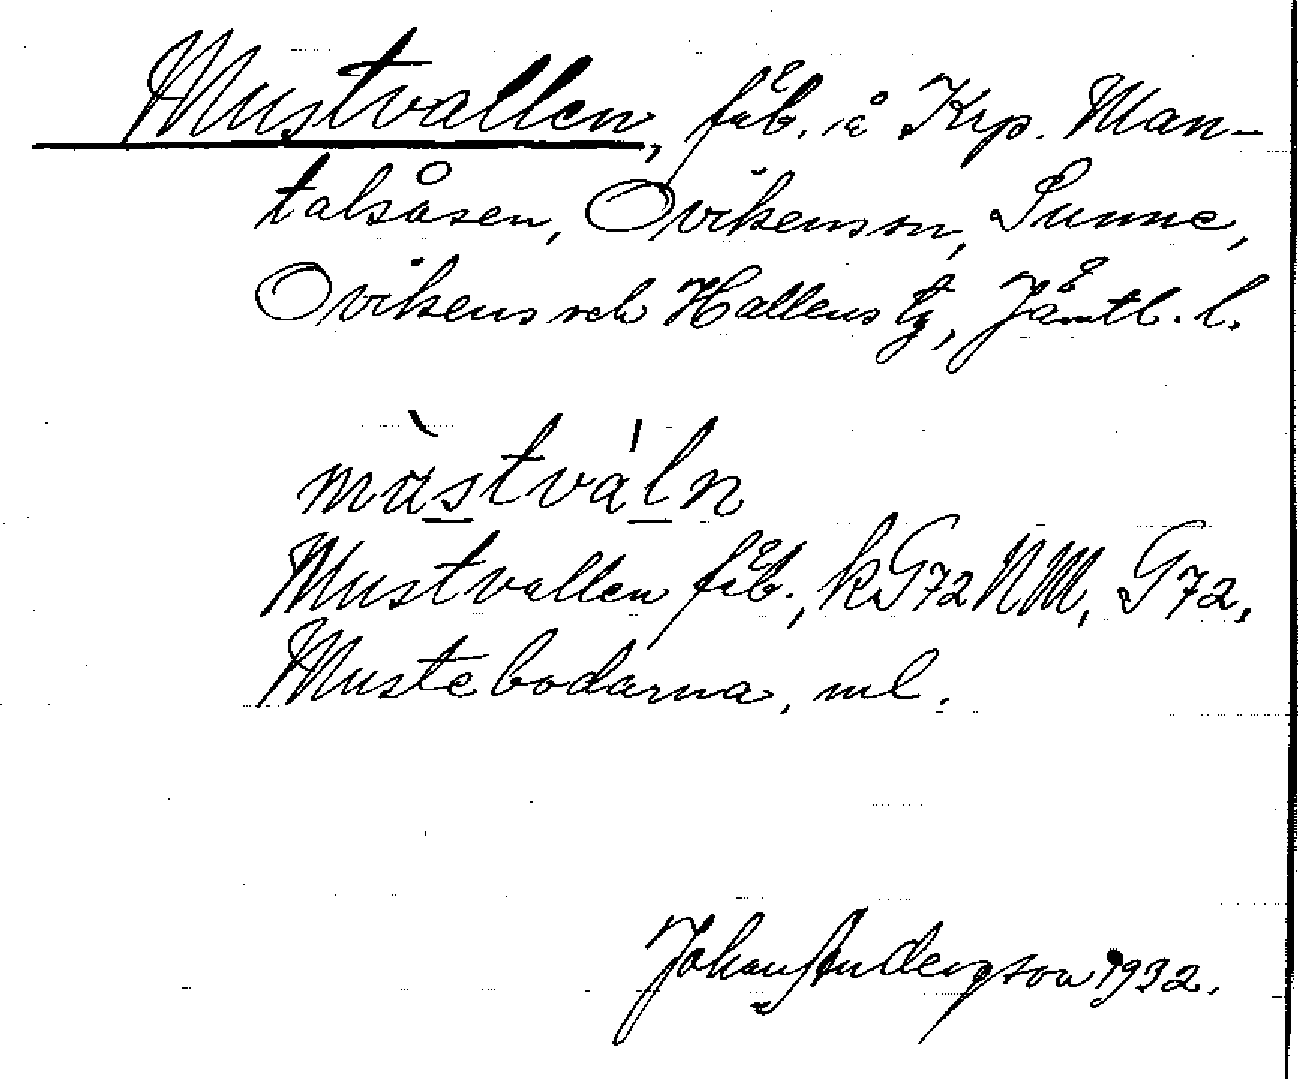 Mustvallen, fäb. å Krp. Man-
talsåsen, Ovikens sn, Sunne,
Ovikens och Hallens tg, Jämtl. l.
mùstváln
Mustvallen fäb., kG72NM, G72,
Mustebodarna, ml.
Johan Anderson 1932.